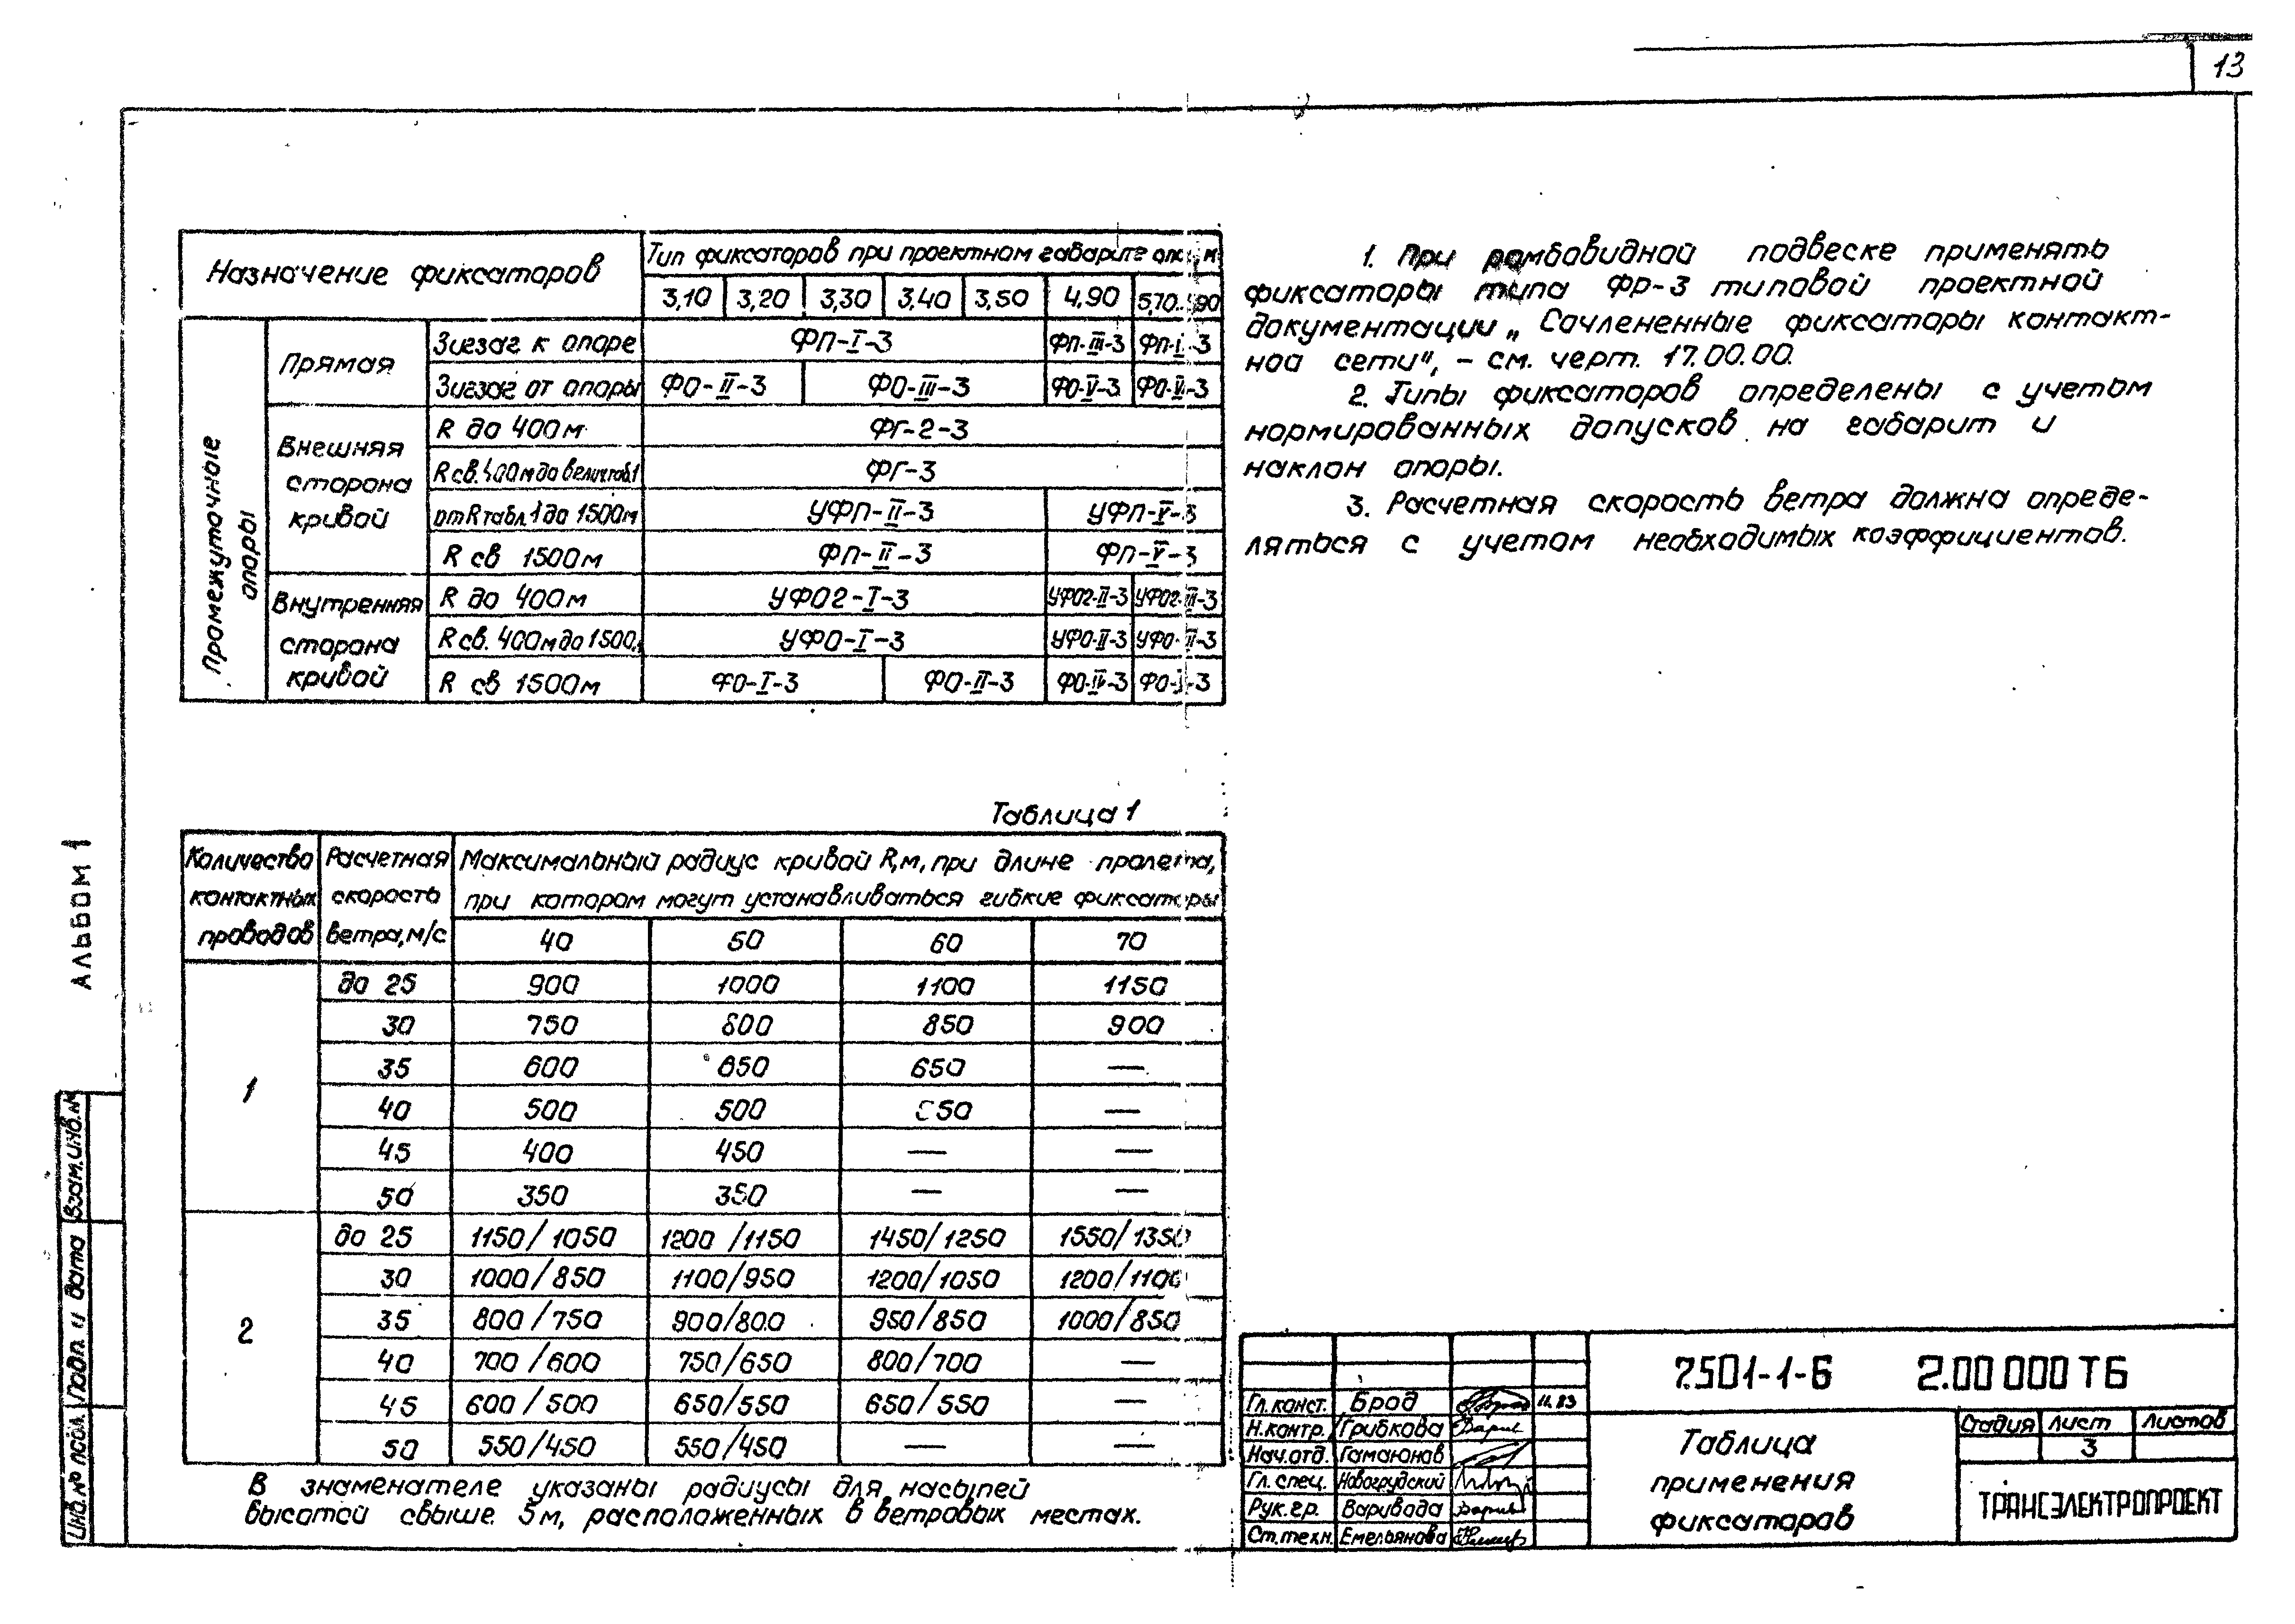 13
Назначение фиксаторов
Тип фиксаторов при проектном габарите
3,10 3,20 3,30 3,40 3,50 4,90
Промежуточные опоры
Прямая
Зигзаг к опоре ФП-I-3 ФП-III-3
Зигзаг от опоры ФО-II-3 ФО-III-3 ФО-V-3
Внешняя сторона кривой
R до 400м ФГ-2-3
R св. 400м до велич.таб.1 ФГ-3
от R табл.1 до 1500м УФП-II-3 УФП-V-3
R св 1500м ФП-II-3 ФП-V-3
Внутренняя сторона кривой
R до 400м УФО2-I-3 УФО2-II-3 УФО2-III-3
R св. 400м до 1500 УФО-I-3 УФО-II-3
R св 1500м ФО-I-3 ФО-II-3 ФО-IV-3
1. При ромбовидной подвеске применять
фиксаторы типа ФР-3 типовой проектной
документации „Сочлененные фиксаторы контакт-
ной сети", - см. черт. 17.00.00.
2. Типы фиксаторов определены с учетом
нормированных допусков на габарит и
наклон опоры.
3. Расчетная скорость ветра должна опреде-
ляться с учетом необходимых коэффициентов.
Таблица 1
Количество контактных проводов
Расчетная скорость ветра, м/с
Максимальный радиус кривой R,м, при длине пролета,
при котором могут устанавливаться гибкие фиксаторы
40 50 60 70
1
до 25 900 1000 1100 1150
30 750 800 850 900
35 600 650 650 —
40 500 500 —
45 400 450 — —
50 350 350 — —
2
до 25 1150/1050 1200/1150 1450/1250 1550/1350
30 1000/850 1100/950 1200/1050 1200/1100
35 800/750 900/800 950/850 1000/850
40 700/600 750/650 800/700 —
45 600/500 650/550 650/550 —
50 550/450 550/450 — —
В знаменателе указаны радиусы для насыпей
высотой свыше 5м, расположенных в ветровых местах.
АЛЬБОМ 1
Взам.инв.№
Подп. и дата
Инв.№ подл.
Гл.конст. Брод 11.83
Н.контр. Грибкова
Нач.отд. Гамаюнов
Гл.спец. Новогрудский
Рук.гр. Варивода
Ст.техн. Емельянова
7.501-1-6 2.00 000 ТБ
Таблица
применения
фиксаторов
Стадия Лист Листов
3
ТРАНСЭЛЕКТРОПРОЕКТ